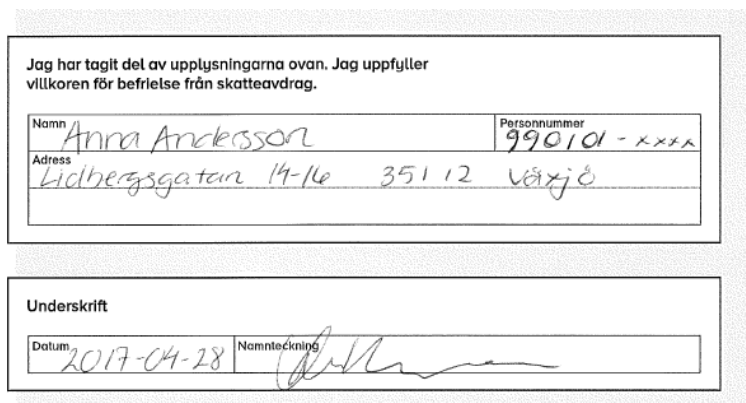 Jag har tagit del av upplysningarna ovan. Jag uppfyller
villkoren för befrielse från skatteavdrag.
Namn Anna Andersson Personnummer 990101-xxxx
Adress Lidbergsgatan 14-16 351 12 Växjö
Underskrift
Datum 2017-04-28 Namnteckning